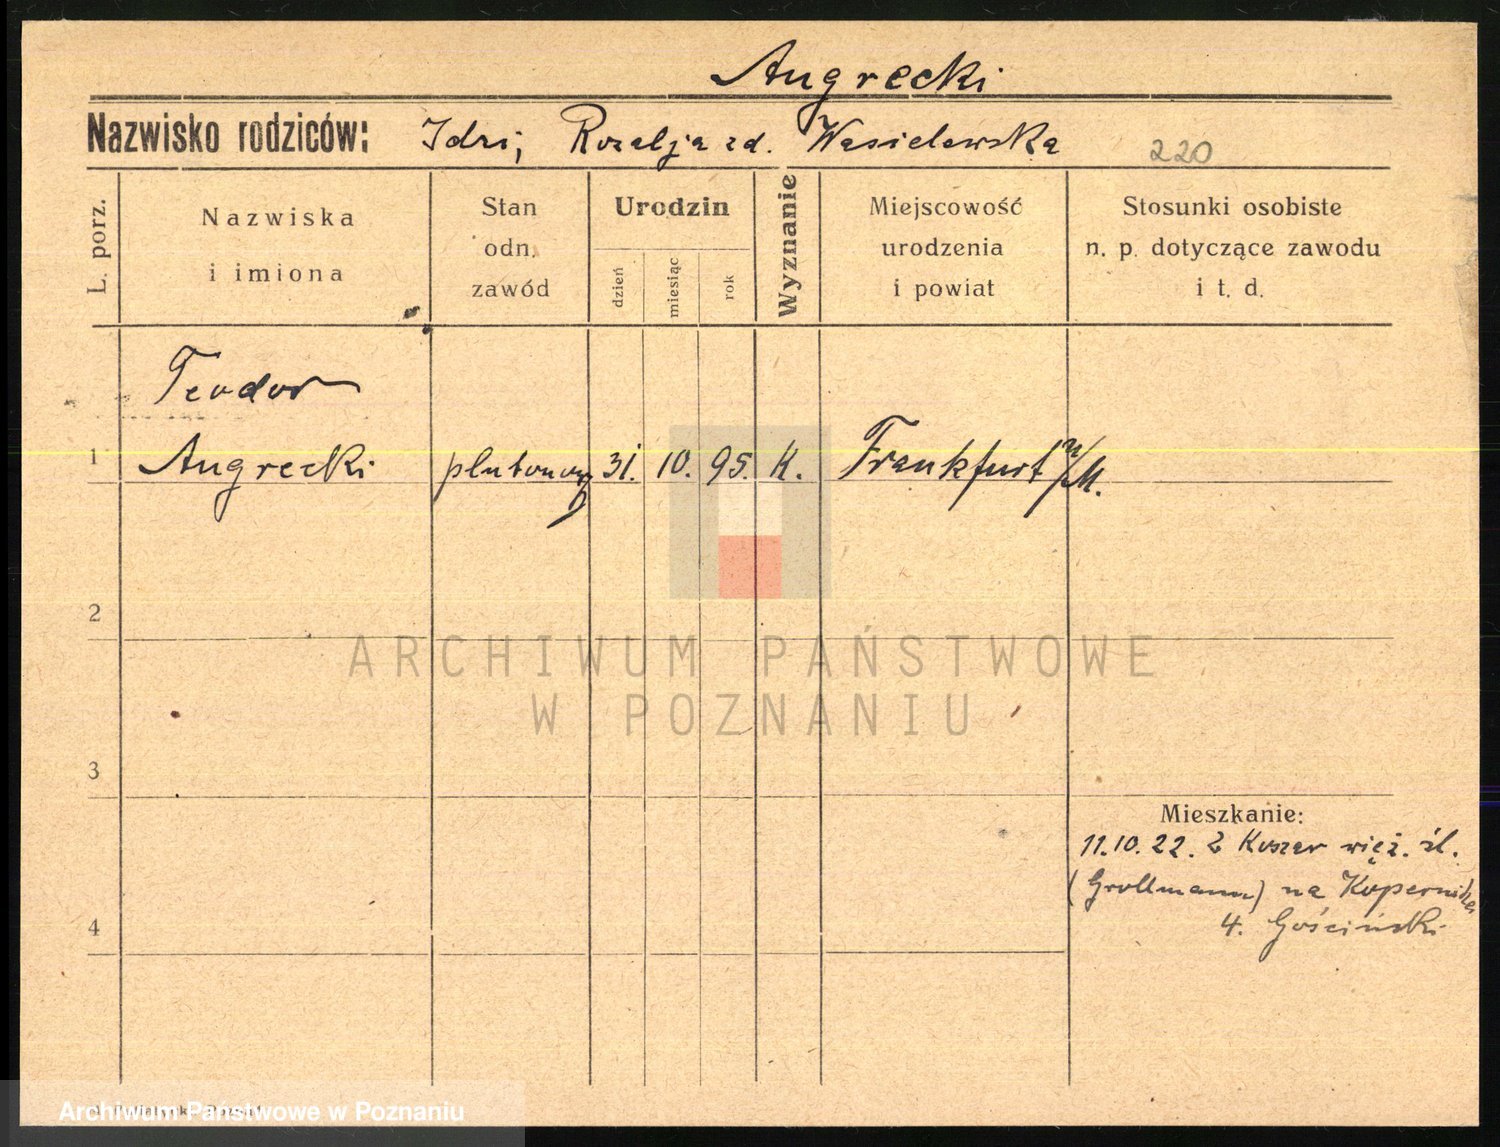 Angrecki
Nazwisko rodziców: Idzi, Rozalja zd. Wasielewska 220
L. porz.
Nazwiska
i imiona
Stan
odn.
zawód
Urodzin
dzień
miesiąc
rok
Wyznanie
Miejscowość
urodzenia
i powiat
Stosunki osobiste
n. p. dotyczące zawodu
i t. d.
Teodor
1 Angrecki plutonowy 31. 10. 95. K. Frankfurt a/M.
2
ARCHIWUM PAŃSTWOWE
W POZNANIU
3
Mieszkanie:
11.10.22. z Koszar więź. śl.
(Grollmann) na Kopernika
4. Gościński
4
Archiwum Państwowe w Poznaniu